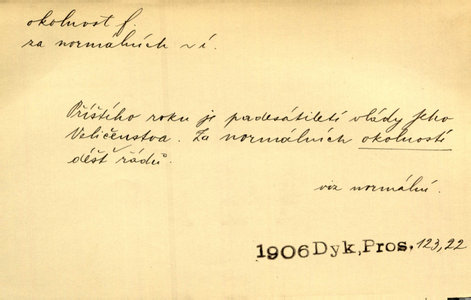 okolnost f.
za normálních ~í.
Příštího roku je padesátiletí vlády Jeho
Veličenstva. Za normálních okolností
déšť řádů.
viz normální.
1906 Dyk, Pros. 123,22